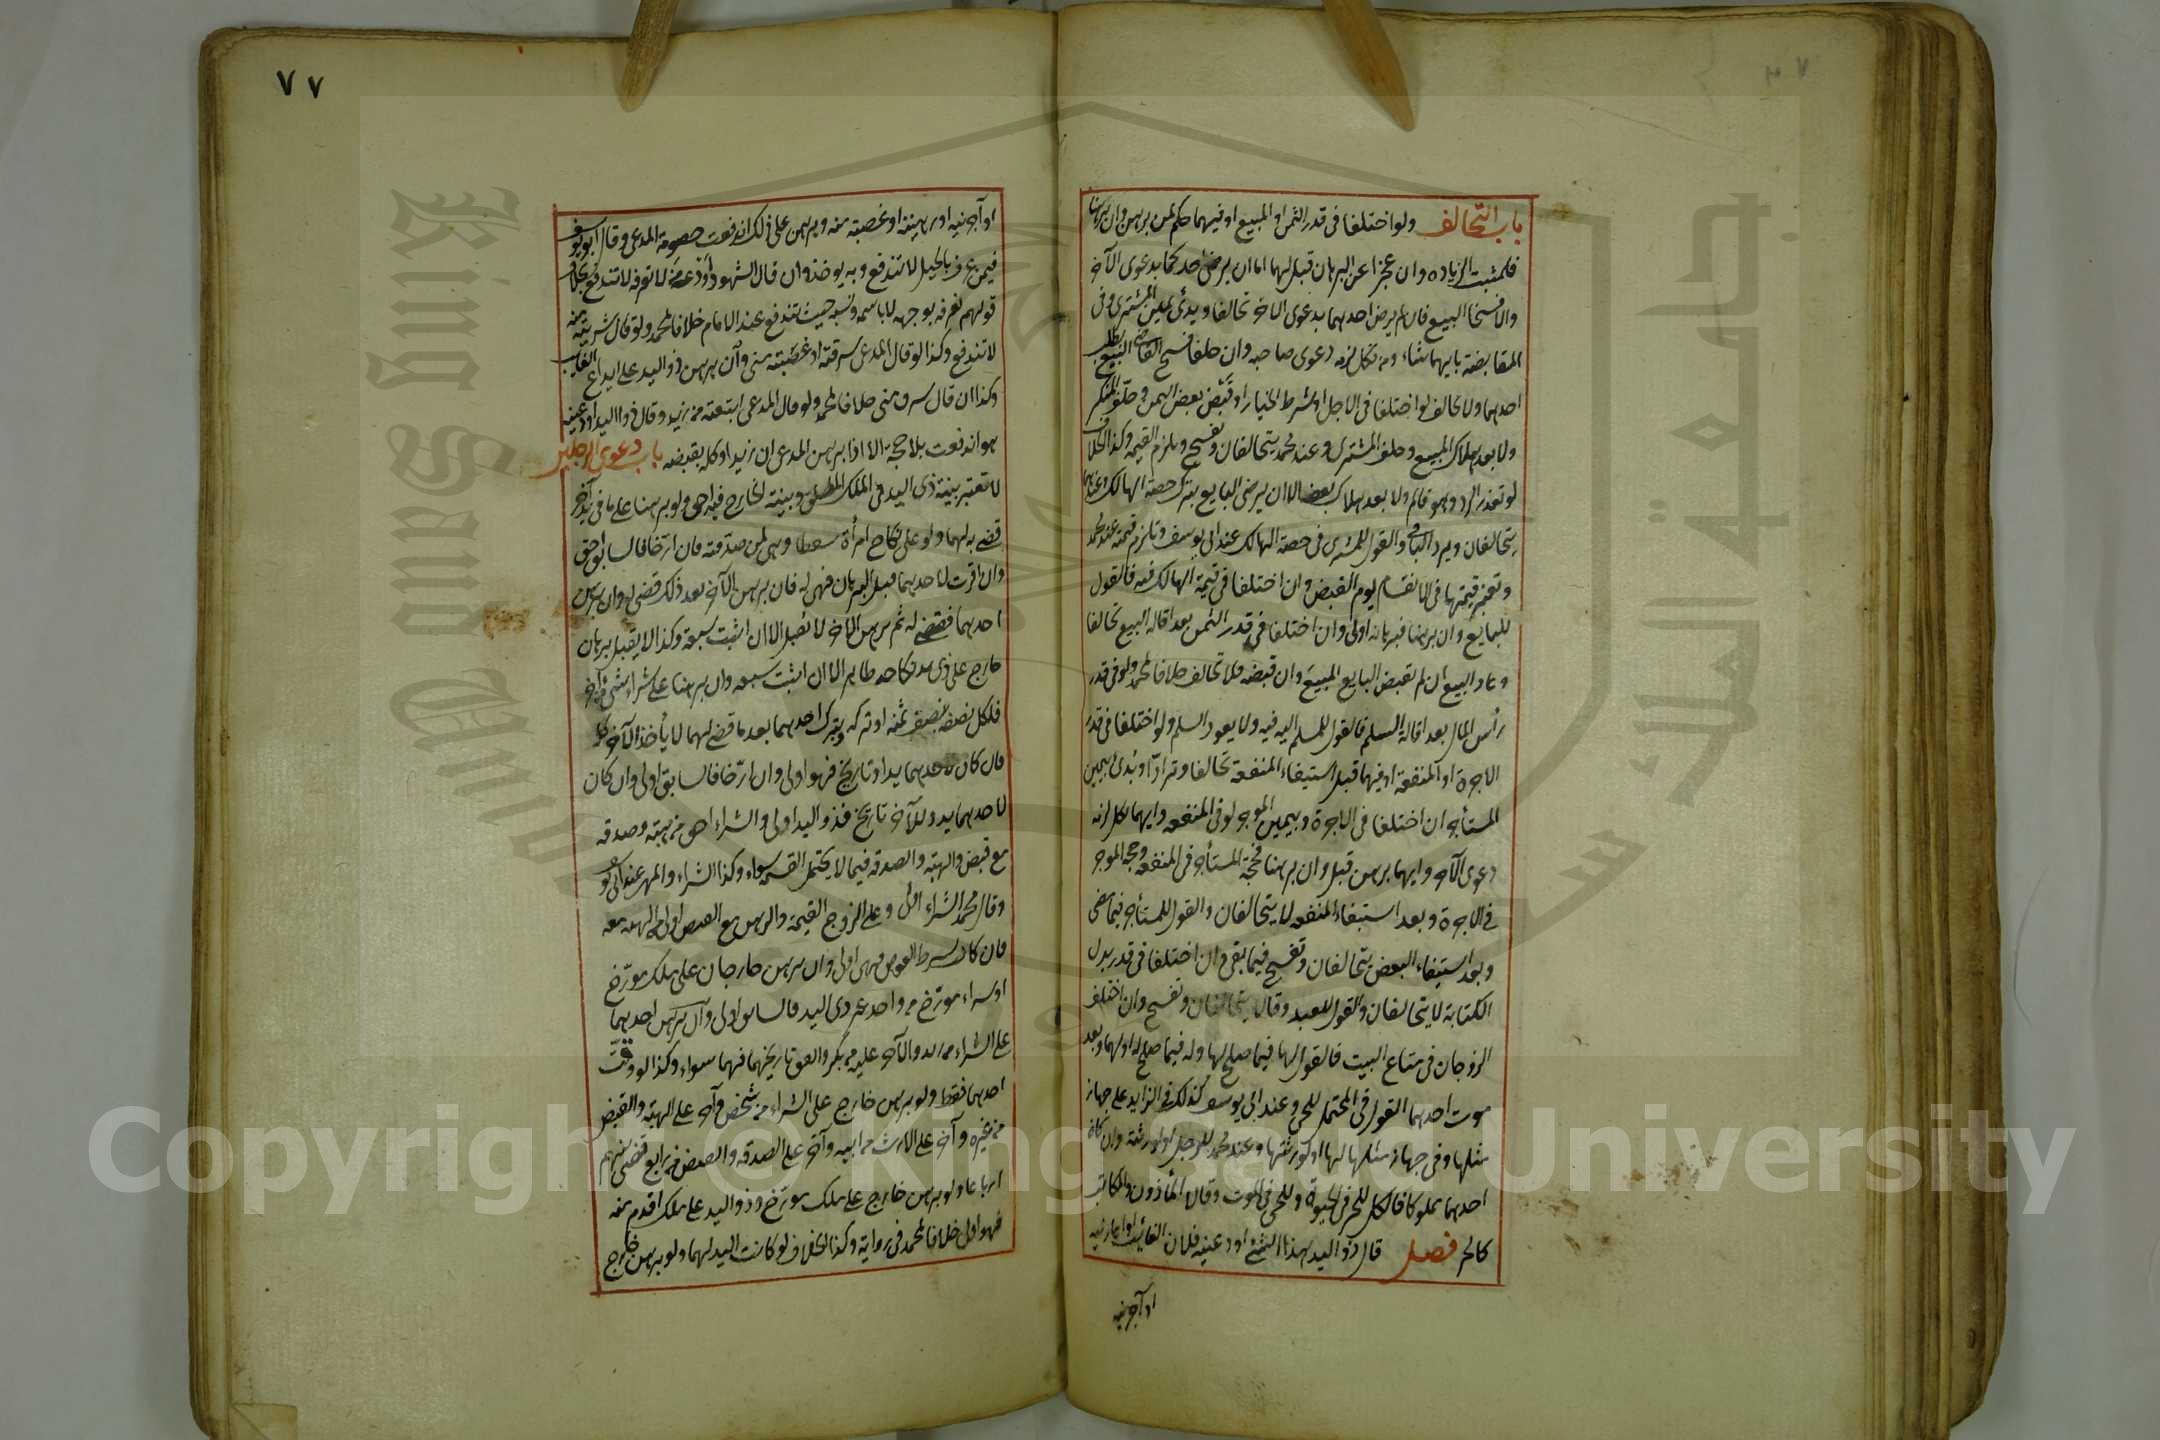 باب التحالف ولو اختلفا فى قدر الثمن او المبيع او فيهما حكم لمن برهن وان برهنا
فلمثبت الزيادة وان عجزا عن البرهان قيل لهما اما ان يرضى احدكما بدعوى الآخر
والا فسخنا البيع فان لم يرض احدهما بدعوى الآخر تحالفا ويبدئ بيمين المشترى وفى
المقايضة بايهما شاء ومن نكل لزمه دعوى صاحبه وان حلفا فسخ القاضى البيع بطلب
احدهما ولا تحالف لو اختلفا فى الاجل او شرط الخيار او قبض بعض الثمن وحلف المنكر
ولا بعد هلاك المبيع وحلف المشترى وعند محمد يتحالفان ويفسخ ويلزم القيمة وكذا الخلاف
لو تعذر الرد وهو قائم ولا بعد هلاك بعضه الا ان يرضى البايع بترك حصة الهالك وعندهما
يتحالفان ويرد الباقى والقول للمشترى فى حصة الهالك عند ابى يوسف وتلزم قيمته عند محمد
وتعتبر قيمتها فى الانقسام يوم القبض وان اختلفا فى قيمة الهالك فيه فالقول
للبايع وان برهنا فبرهانه اولى وان اختلفا فى قدر الثمن بعد اقالة البيع تحالفا
وعاد البيع ان لم يقبض البايع المبيع وان قبضه فلا تحالف خلافا لمحمد ولو فى قدر
رأس المال بعد اقالة السلم فالقول للمسلم اليه فيه ولا يعود السلم ولو اختلفا فى قدر
الاجرة او المنفعة او فيهما قبل استيفاء المنفعة تحالفا وترادا وبدئ بيمين
المستأجر ان اختلفا فى الاجرة وبيمين الموجر لو فى المنفعه وايهما نكل لزمه
دعوى الآخر وايهما برهن قبل وان برهنا فحجة المستأجر فى المنفعه وحجة الموجر
فى الاجرة وبعد استيفاء المنفعه لا يتحالفان والقول للمستأجر فيما مضى
وبعد استيفاء البعض يتحالفان وتفسخ فيما بقى وان اختلفا فى قدر بدل
الكتابة لا يتحالفان والقول للعبد وقالا يتحالفان وتفسخ وان اختلف
الزوجان فى متاع البيت فالقول لها فيما صلح لها وله فيما صلح له او لهما وبعد
موت احدهما القول فى المحتمل للحى وعند ابى يوسف كذلك فى الزايد على جهاز
مثلها وفى جهاز مثلها لها او لورثتها وعند محمد للرجل او لورثته وان كان
احدهما مملوكا فالكل للحر فى الحيوة وللحى فى الموت وقالا المأذون والمكاتب
كالحر فصل قال ذو اليد هذا الشئ اودعنيه فلان الغائب او اعارنيه
او آجرنيه
٧٧
او آجرنيه او رهنيه او غصبته منه وبرهن على ذلك اندفعت خصومة المدعى وقال ابو يوسف
فيمن عرف بالحيل لا تندفع وبه يوخذ وان قال الشهود اودعه من لا نعرفه لا تندفع بخلاف
قولهم نعرفه بوجهه لا باسمه ونسبه حيث تندفع عند الامام خلافا لمحمد ولو قال شريته منه
لا تندفع وكذا لو قال المدعى سرقته او غصبته منى وان برهن ذو اليد على ايداع الغائب
وكذا ان قال سرق منى خلافا لمحمد ولو قال المدعى ابتعته من زيد وقال ذو اليد اودعنيه
هو اندفعت بلا حجة الا اذا برهن المدعى ان زيدا وكله بقبضه باب دعوى الرجلين
لا تعتبر بينة ذى اليد فى الملك المطلق وبينة الخارج فيه احق ولو برهنا على ما فى يد آخر
قضى به لهما ولو على نكاح امرأة سقطا وهى لمن صدقته فان ارخا فالسابق احق
وان اقرت لاحدهما قبل البرهان فهى له فان برهن الآخر بعد ذلك قضى له وان برهن
احدهما فقضى له ثم برهن الآخر لا يقبل الا ان اثبت سبقه وكذا لا يقبل برهان
خارج على ذى يد نكاحه ظاهر الا ان اثبت سبقه وان برهنا على شراء شئ من آخر
فلكل نصفه بنصف ثمنه او تركه وبترك احدهما بعد ما قضى لهما لا يأخذ الآخر كله
فان كان لاحدهما يد او تاريخ فهو اولى وان ارخا فالسابق اولى وان كان
لاحدهما يد وللآخر تاريخ فذو اليد اولى والشراء احق من هبة وصدقه
مع قبض والهبة والصدقه فيما لا يحتمل القسمه سواء وكذا الشراء والمهر عند ابى يوسف
وقال محمد الشراء اولى وعلى الزوج القيمة والرهن مع القبض اولى من الهبه معه
فان كان بشرط العوض فهى اولى وان برهن خارجان على ملك مورخ
او شراء مورخ من واحد غير ذى اليد فالسابق اولى وان برهن احدهما
على الشراء من زيد والآخر عليه من بكر واتفق تاريخهما فهما سواء وكذا لو وقت
احدهما فقط ولو برهن خارج على الشراء من شخص وآخر على الهبة والقبض
من غيره وآخر على الارث من ابيه وآخر على الصدقه والقبض من رابع قضى بينهم
ارباعا ولو برهن خارج على ملك مورخ وذو اليد على ملك اقدم منه
فهو اولى خلافا لمحمد فى رواية وكذا الخلاف لو كانت اليد لهما ولو برهن خارج
Copyright © King Saud University
King Saud University
جامعة الملك سعود
1957